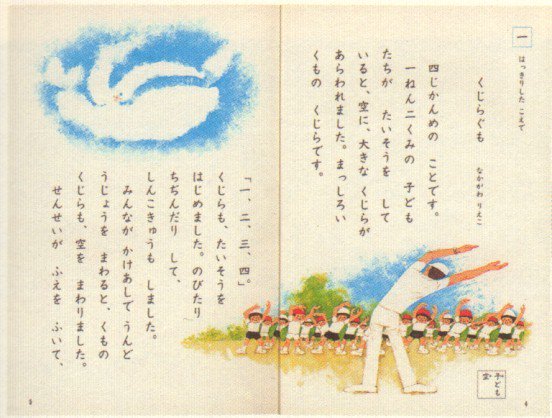 一
はっきりした こえで
くじらぐも
なかがわ りえこ
四じかんめの ことです。
一ねん二くみの 子ども
たちが たいそうを して
いると、空に、大きな くじらが
あらわれました。まっしろい
くもの くじらです。
子ども
空
4
「一、二、三、四。」
くじらも、たいそうを
はじめました。のびたり
ちぢんだり して、
しんこきゅうも しました。
みんなが かけあしで うんど
うじょうを まわると、くもの
くじらも、空を まわりました。
せんせいが ふえを ふいて、
5